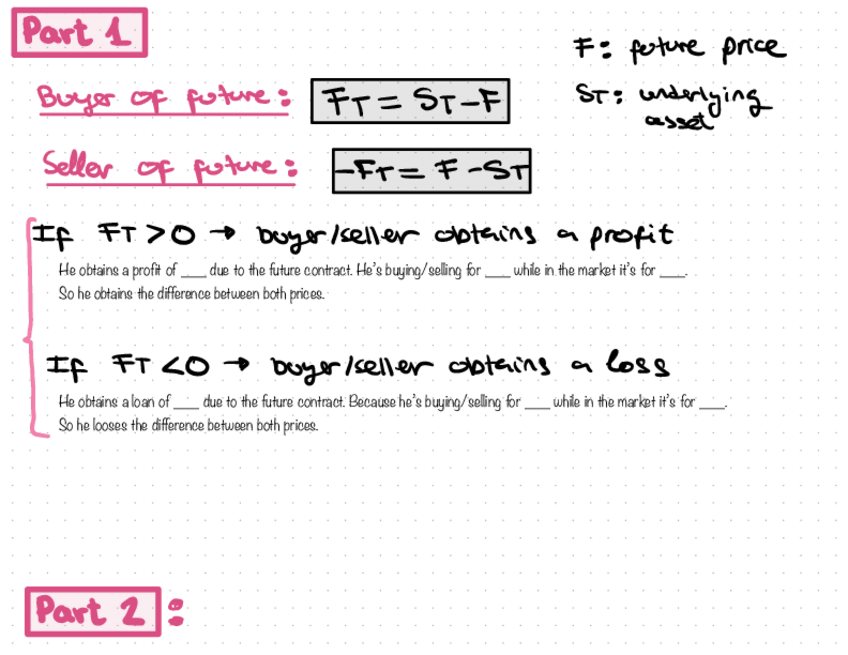 Part 1
F: future price
Buyer of future: FT = ST - F
ST: underlying
asset
Seller of future: -FT = F - ST
If FT > 0 → buyer/seller obtains a profit
He obtains a profit of ___ due to the future contract. He's buying/selling for ___ while in the market it's for ___.
So he obtains the difference between both prices.
If FT < 0 → buyer/seller obtains a loss
He obtains a loan of ___ due to the future contract. Because he's buying/selling for ___ while in the market it's for ___.
So he looses the difference between both prices.
Part 2: